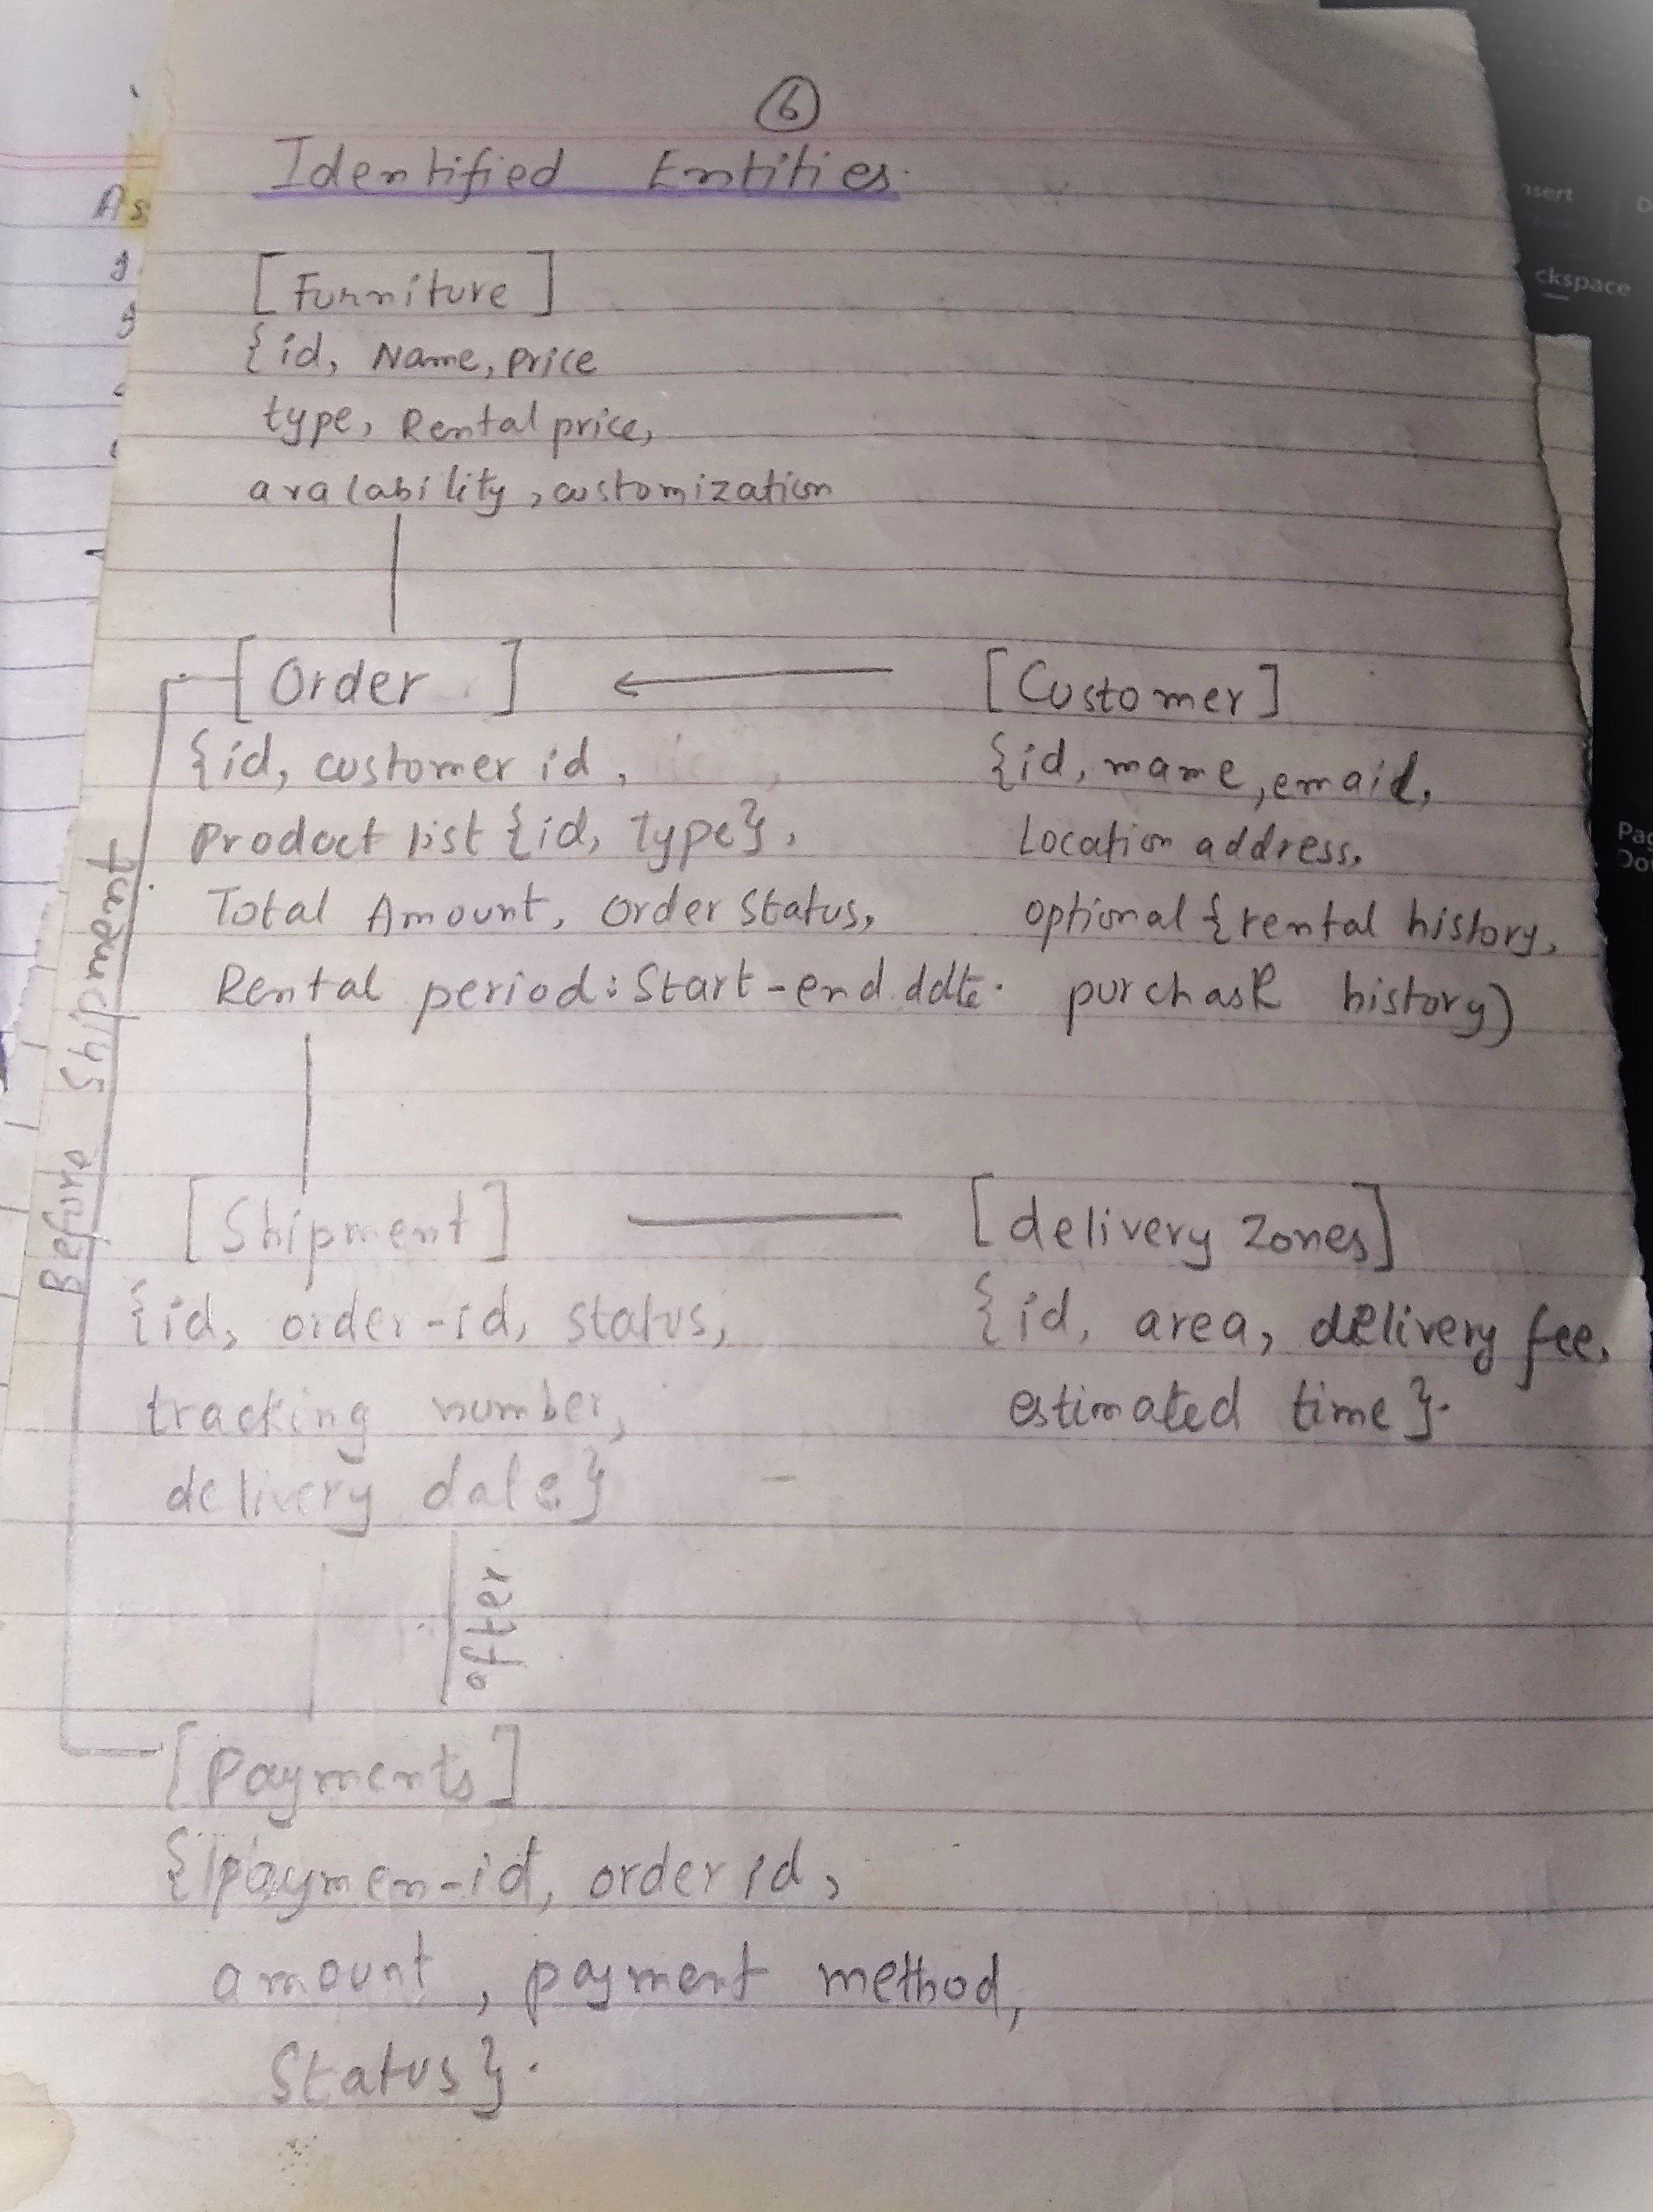 6
Identified Entities.
As
[Furniture]
{id, Name, price
type, Rental price,
avalability, customization
[Order]
[Customer]
{id, customer id,
Product list {id, Type},
Total Amount, Order Status,
Rental period: Start-end date.
{id, name, email,
Location address,
optional {rental history,
purchase history)
Before Shipment
[Shipment]
{id, order-id, status,
tracking number,
delivery date}
[delivery Zones]
{id, area, delivery fee,
estimated time}.
after
[Payments]
{paymen-id, order id,
amount, payment method,
Status}.
nsert
ckspace